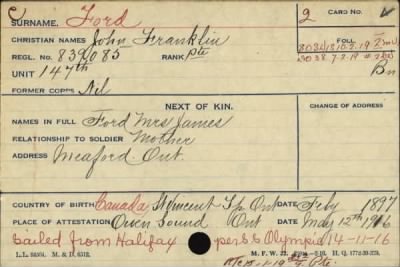 C
SURNAME. Ford
2 CARD NO.
CHRISTIAN NAMES John Franklin
FOLL
REGL. NO. 839085 RANK Pte
UNIT 147th Bn
FORMER CORPS Nil
NEXT OF KIN.
CHANGE OF ADDRESS
NAMES IN FULL Ford Mrs James
RELATIONSHIP TO SOLDIER Mother
ADDRESS Meaford Ont.
COUNTRY OF BIRTH Canada, St Vincent Tp Ont DATE Feby 1897
PLACE OF ATTESTATION Owen Sound Ont DATE May 12th 1916
Sailed from Halifax per S.S Olympic 14-11-16
M.F.W. 22.